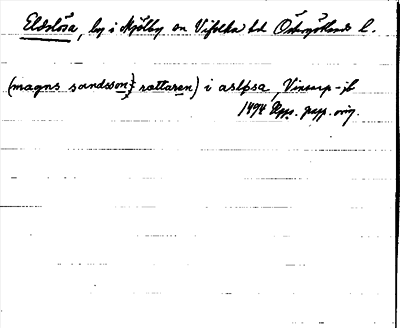 Eldslösa, by i Mjölby sn Vifolka hd Östergötlands l.
(magns sandsson} rættaren) i asløsa, Vinsarp-jb
1494 Upps. papp. orig.